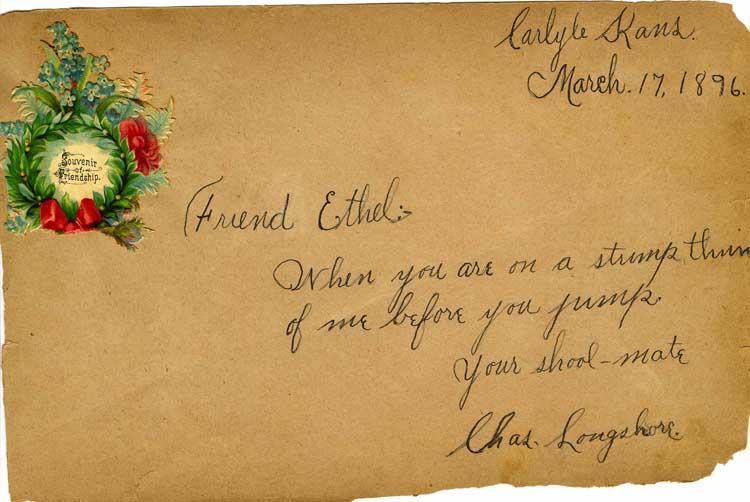 Carlyle Kans.
March. 17, 1896.
Souvenir
of
Friendship.
Friend Ethel:
When you are on a stump thin
of me before you jump.
Your shool-mate
Chas. Longshore.